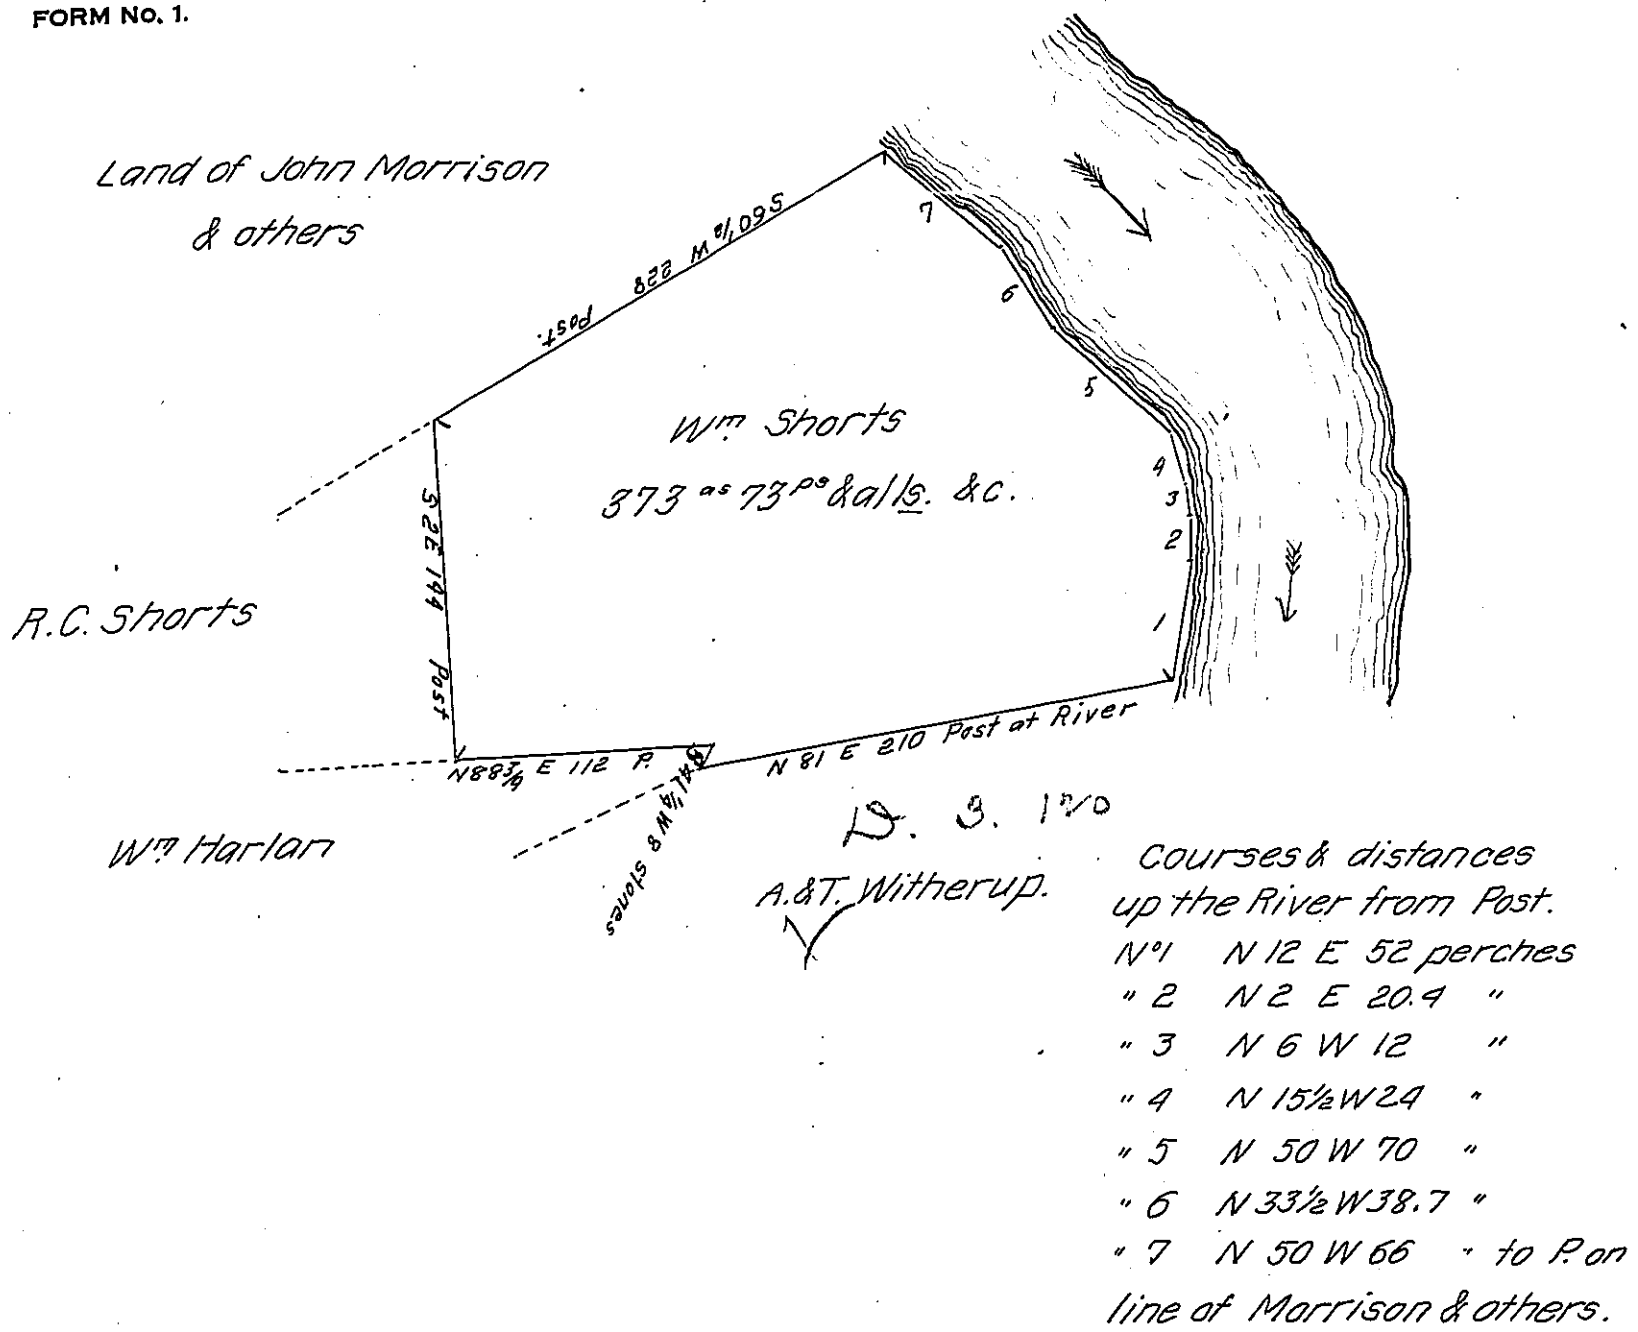 FORM No. 1.
Land of John Morrison
& others
S 60 1/2 W 228 Post.
7
6
5
4
3
2
1
Wm Shorts
373 as 73 ps & alls. &c.
S 2 E 144 Post
R.C. Shorts
N 88 3/4 E 112 P.
N 81 E 210 Post at River
1/4 W 8 stones
Wm Harlan
D. 3. 170
A.&T. Witherup.
Courses & distances
up the River from Post.
No 1 N 12 E 52 perches
" 2 N 2 E 20.4 "
" 3 N 6 W 12 "
" 4 N 15 1/2 W 24 "
" 5 N 50 W 70 "
" 6 N 33 1/2 W 38.7 "
" 7 N 50 W 66 " to P. on
line of Morrison & others.